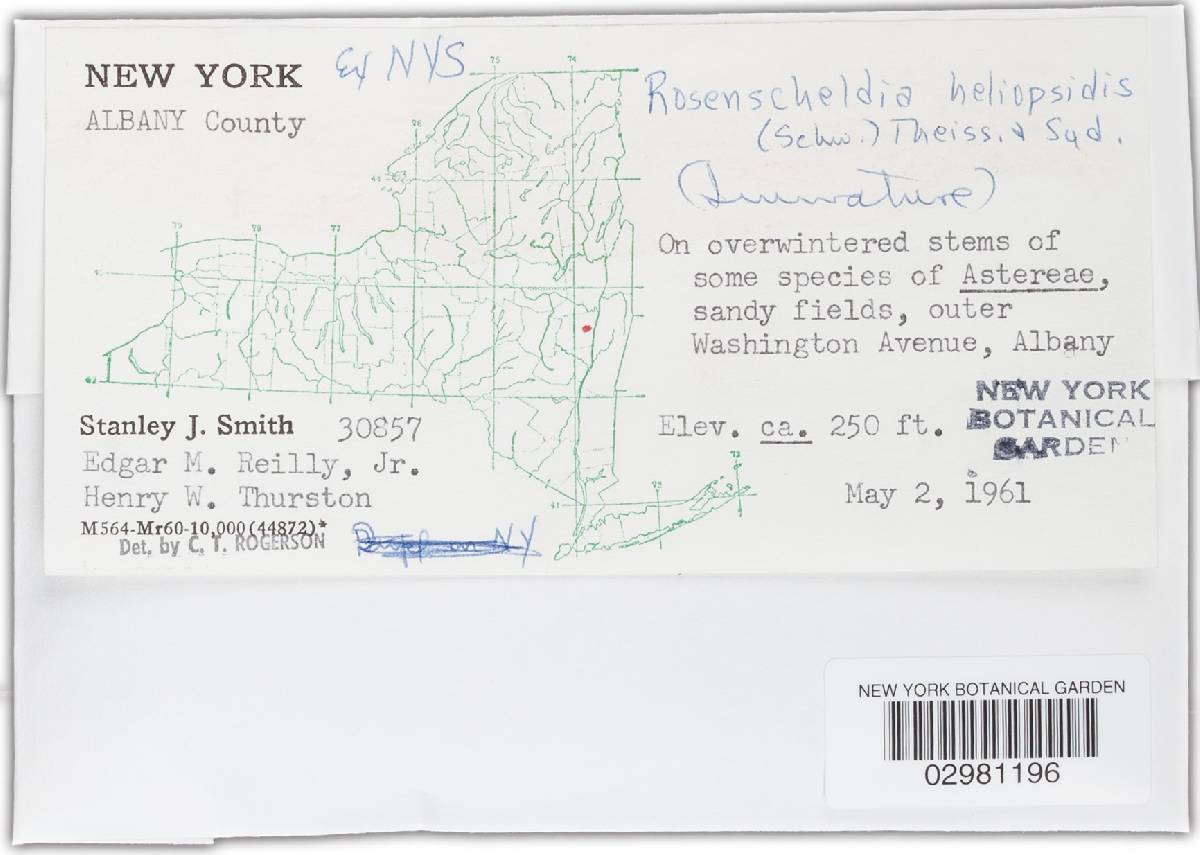 NEW YORK
ALBANY County
Ex NYS
Rosenscheldia heliopsidis
(Schw.) Theiss. & Syd.
(Immature)
On overwintered stems of
some species of Astereae,
sandy fields, outer
Washington Avenue, Albany
Elev. ca. 250 ft.
NEW YORK
BOTANICAL
GARDEN
May 2, 1961
Stanley J. Smith 30857
Edgar M. Reilly, Jr.
Henry W. Thurston
M564-Mr60-10,000(44872)*
Det. by C. T. ROGERSON
NY
75
74
76
79
78
77
44
43
42
41
73
72
NEW YORK BOTANICAL GARDEN
02981196